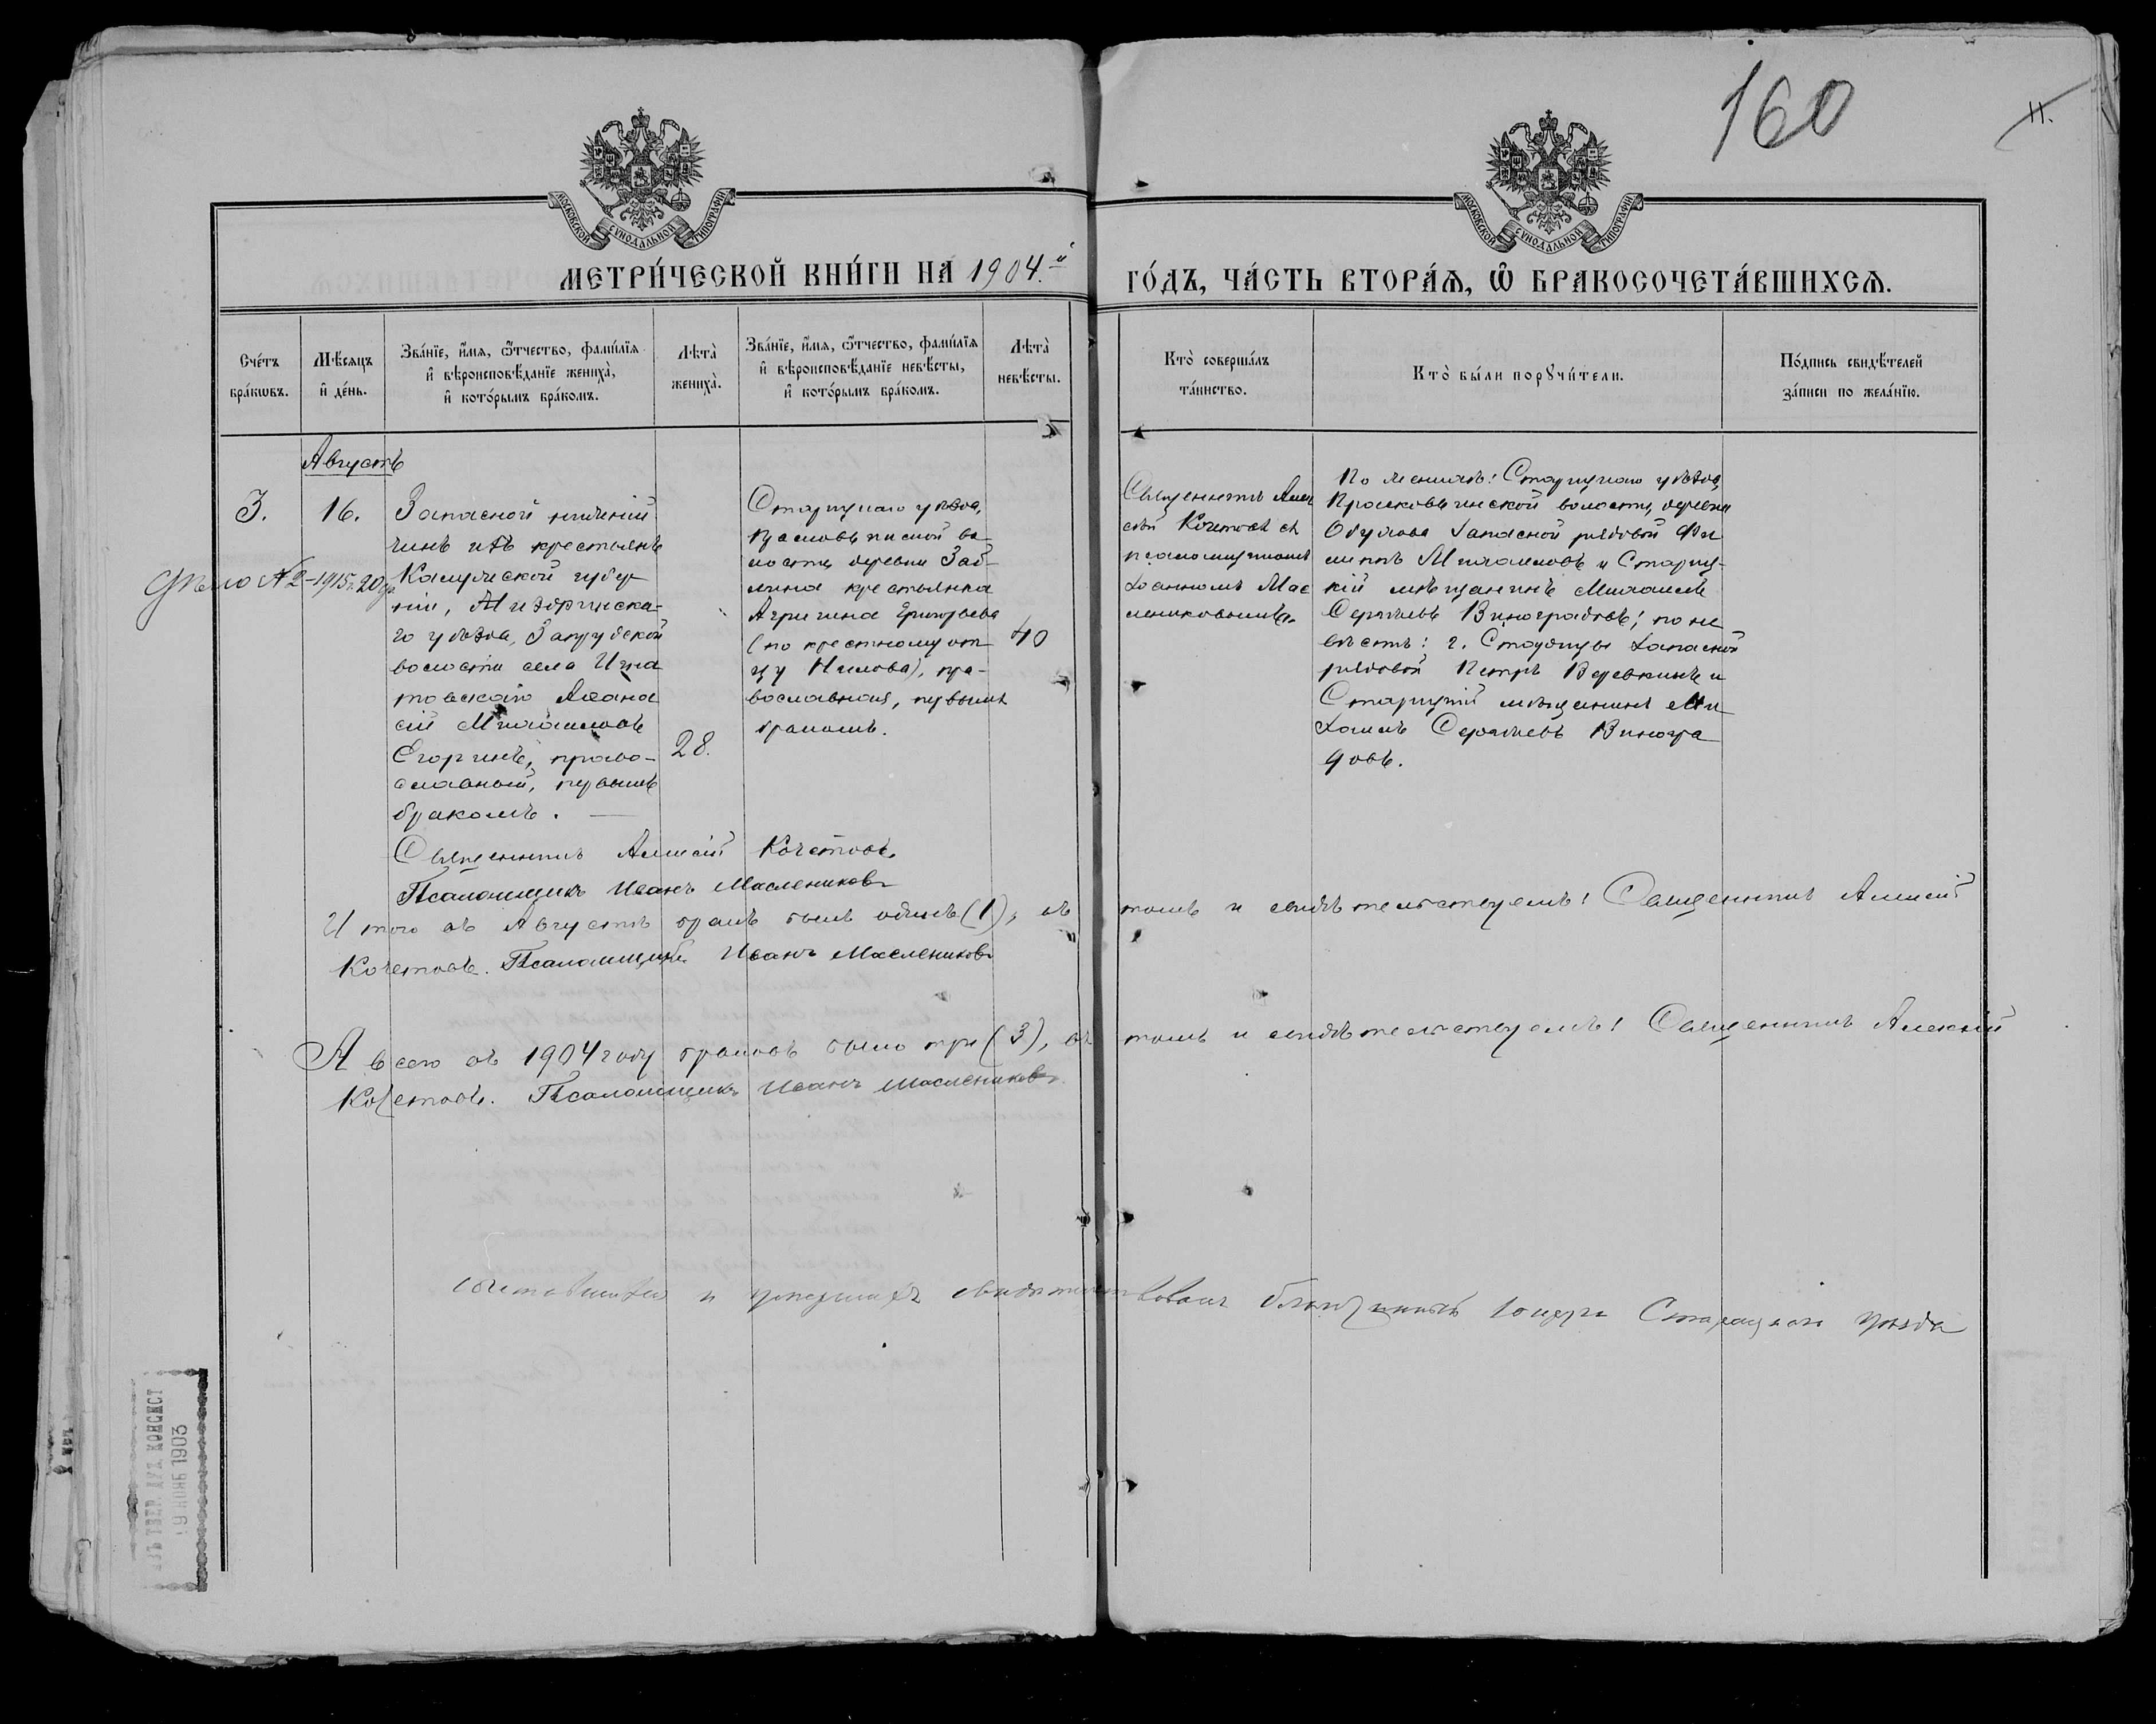 160
11.
МОСКОВСКОЙ СѴНОДАЛЬНОЙ ТИПОГРАФІИ
МОСКОВСКОЙ СѴНОДАЛЬНОЙ ТИПОГРАФІИ
МЕТРИ́ЧЕСКОЙ КНИ́ГИ НА 1904.й ГО́ДЪ, ЧА́СТЬ ВТОРА́Ѧ, Ѿ БРАКОСОЧЕТА́ВШИХСѦ.
Сче́тъ
бра́кѡвъ.
Мѣ́сяцъ
и҆ де́нь.
Зва́нїе, и҆́мѧ, ѻ҆́тчество, фами́лїѧ
и҆ вѣроисповѣ́данїе жениха̀,
и҆ кото́рымъ бра́комъ.
Лѣта̀
жениха̀.
Зва́нїе, и҆́мѧ, ѻ҆́тчество, фами́лїѧ
и҆ вѣроисповѣ́данїе невѣ́сты,
и҆ кото́рымъ бра́комъ.
Лѣта̀
невѣ́сты.
Кто̀ соверша́лъ
та́инство.
Кто̀ бы́ли порꙋчи́тели.
По́дпись свидѣ́телей
за́писи по жела́нїю.
Августъ
3.
16.
Запасной нижній
чинъ изъ крестьянъ
Калужской губер-
ніи, Миздринска-
го уѣзда, Запрудской
волости села Игна
товскаго Аѳана
сій Михаиловъ
Егоринъ, право-
славный, первымъ
бракомъ.
28.
Старицкаго уѣзда,
волости деревни
крестьянка
Григорьева
(по крестному от-
цу Нилова), пра-
вославная, первымъ
бракомъ.
40
№ 2 - 1915
Священникъ Алек
сѣй Кочетовъ съ
псаломщикомъ
Іоанномъ Мас
лениковымъ.
По женихѣ: Старицкаго уѣзда,
Прасковьинской волости, деревни
запасной рядовой Фи
липпъ Михаиловъ и Стариц-
кій мѣщанинъ Михаилъ
Сергѣевъ Виноградовъ; по не
вѣстѣ: г. Старицы запасной
рядовой Петръ Веревкинъ и
Старицкій мѣщанинъ Ми
хаилъ Сергѣевъ Виногра
довъ.
Священникъ Алексій Кочетовъ.
Псаломщикъ Иванъ Маслениковъ
Итого въ Августѣ бракъ былъ одинъ (1), въ томъ и свидѣтельствуемъ: Священникъ Алексій
Кочетовъ. Псаломщикъ Иванъ Маслениковъ
А всего въ 1904 году браковъ было три (3), въ томъ и свидѣтельствуемъ: Священникъ Алексій
Кочетовъ. Псаломщикъ Иванъ Маслениковъ
и умершихъ свидѣтельствовалъ благочинный округа Старицкаго уѣзда
ИЗЪ ТВЕР. ДУХ. КОНСИСТ
19 НОЯБ 1903